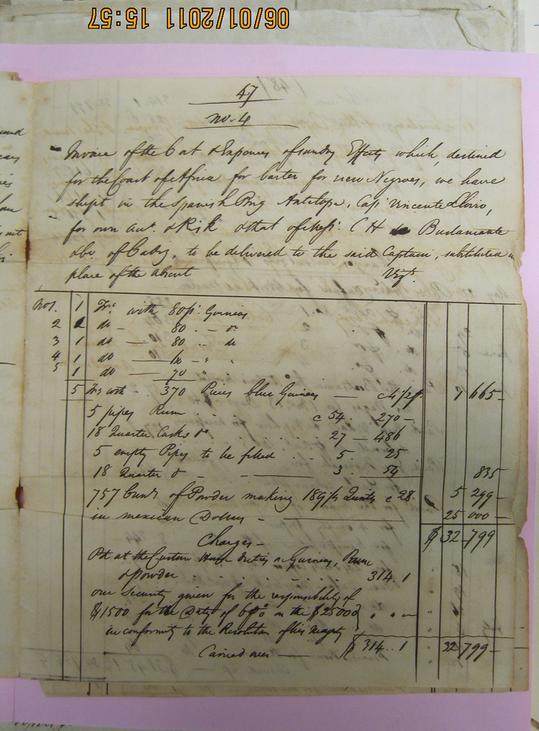 06/01/2011 15:57
47
No. 4
Invoice of the Cost & Expences of Sundry Effects which, destined
for the Coast of Africa for barter for new Negroes, we have
shipt in the Spanish Brig Antelope, Capt. Vincente Llovio,
for own acct. & Risk & that of Messrs. C H Bustamante
of to be delivered to the said Captain, substituted in
place of the absent Vizt.
Nos. 1 1 Trs. with 80 ps. Guineas
2 1 do - 80 - do
3 1 do - 80 - do
4 1 do
5 1 do - 70
5 Trs with - 370 Pieces blue Guineas
5 pipes Rum c 54 270 -
18 Quarter Casks do 27 - 486
5 empty Pipes to be filled 5 25
18 Quarter do 3 54 835
757 of Powder making 189¼ Quintls c 28 5 299 -
in mexican Dollars - 25 000 -
$ 32 799
Charges -
Pd at the Custom House Duties on Guineas, Rum
& Powder 314.1
our Security given for the responsibility of
$1500 for the Duty of 6 pCt on the $25000
in conformity to the Resolution of his Majesty
Carried over $ 314..1 799 -